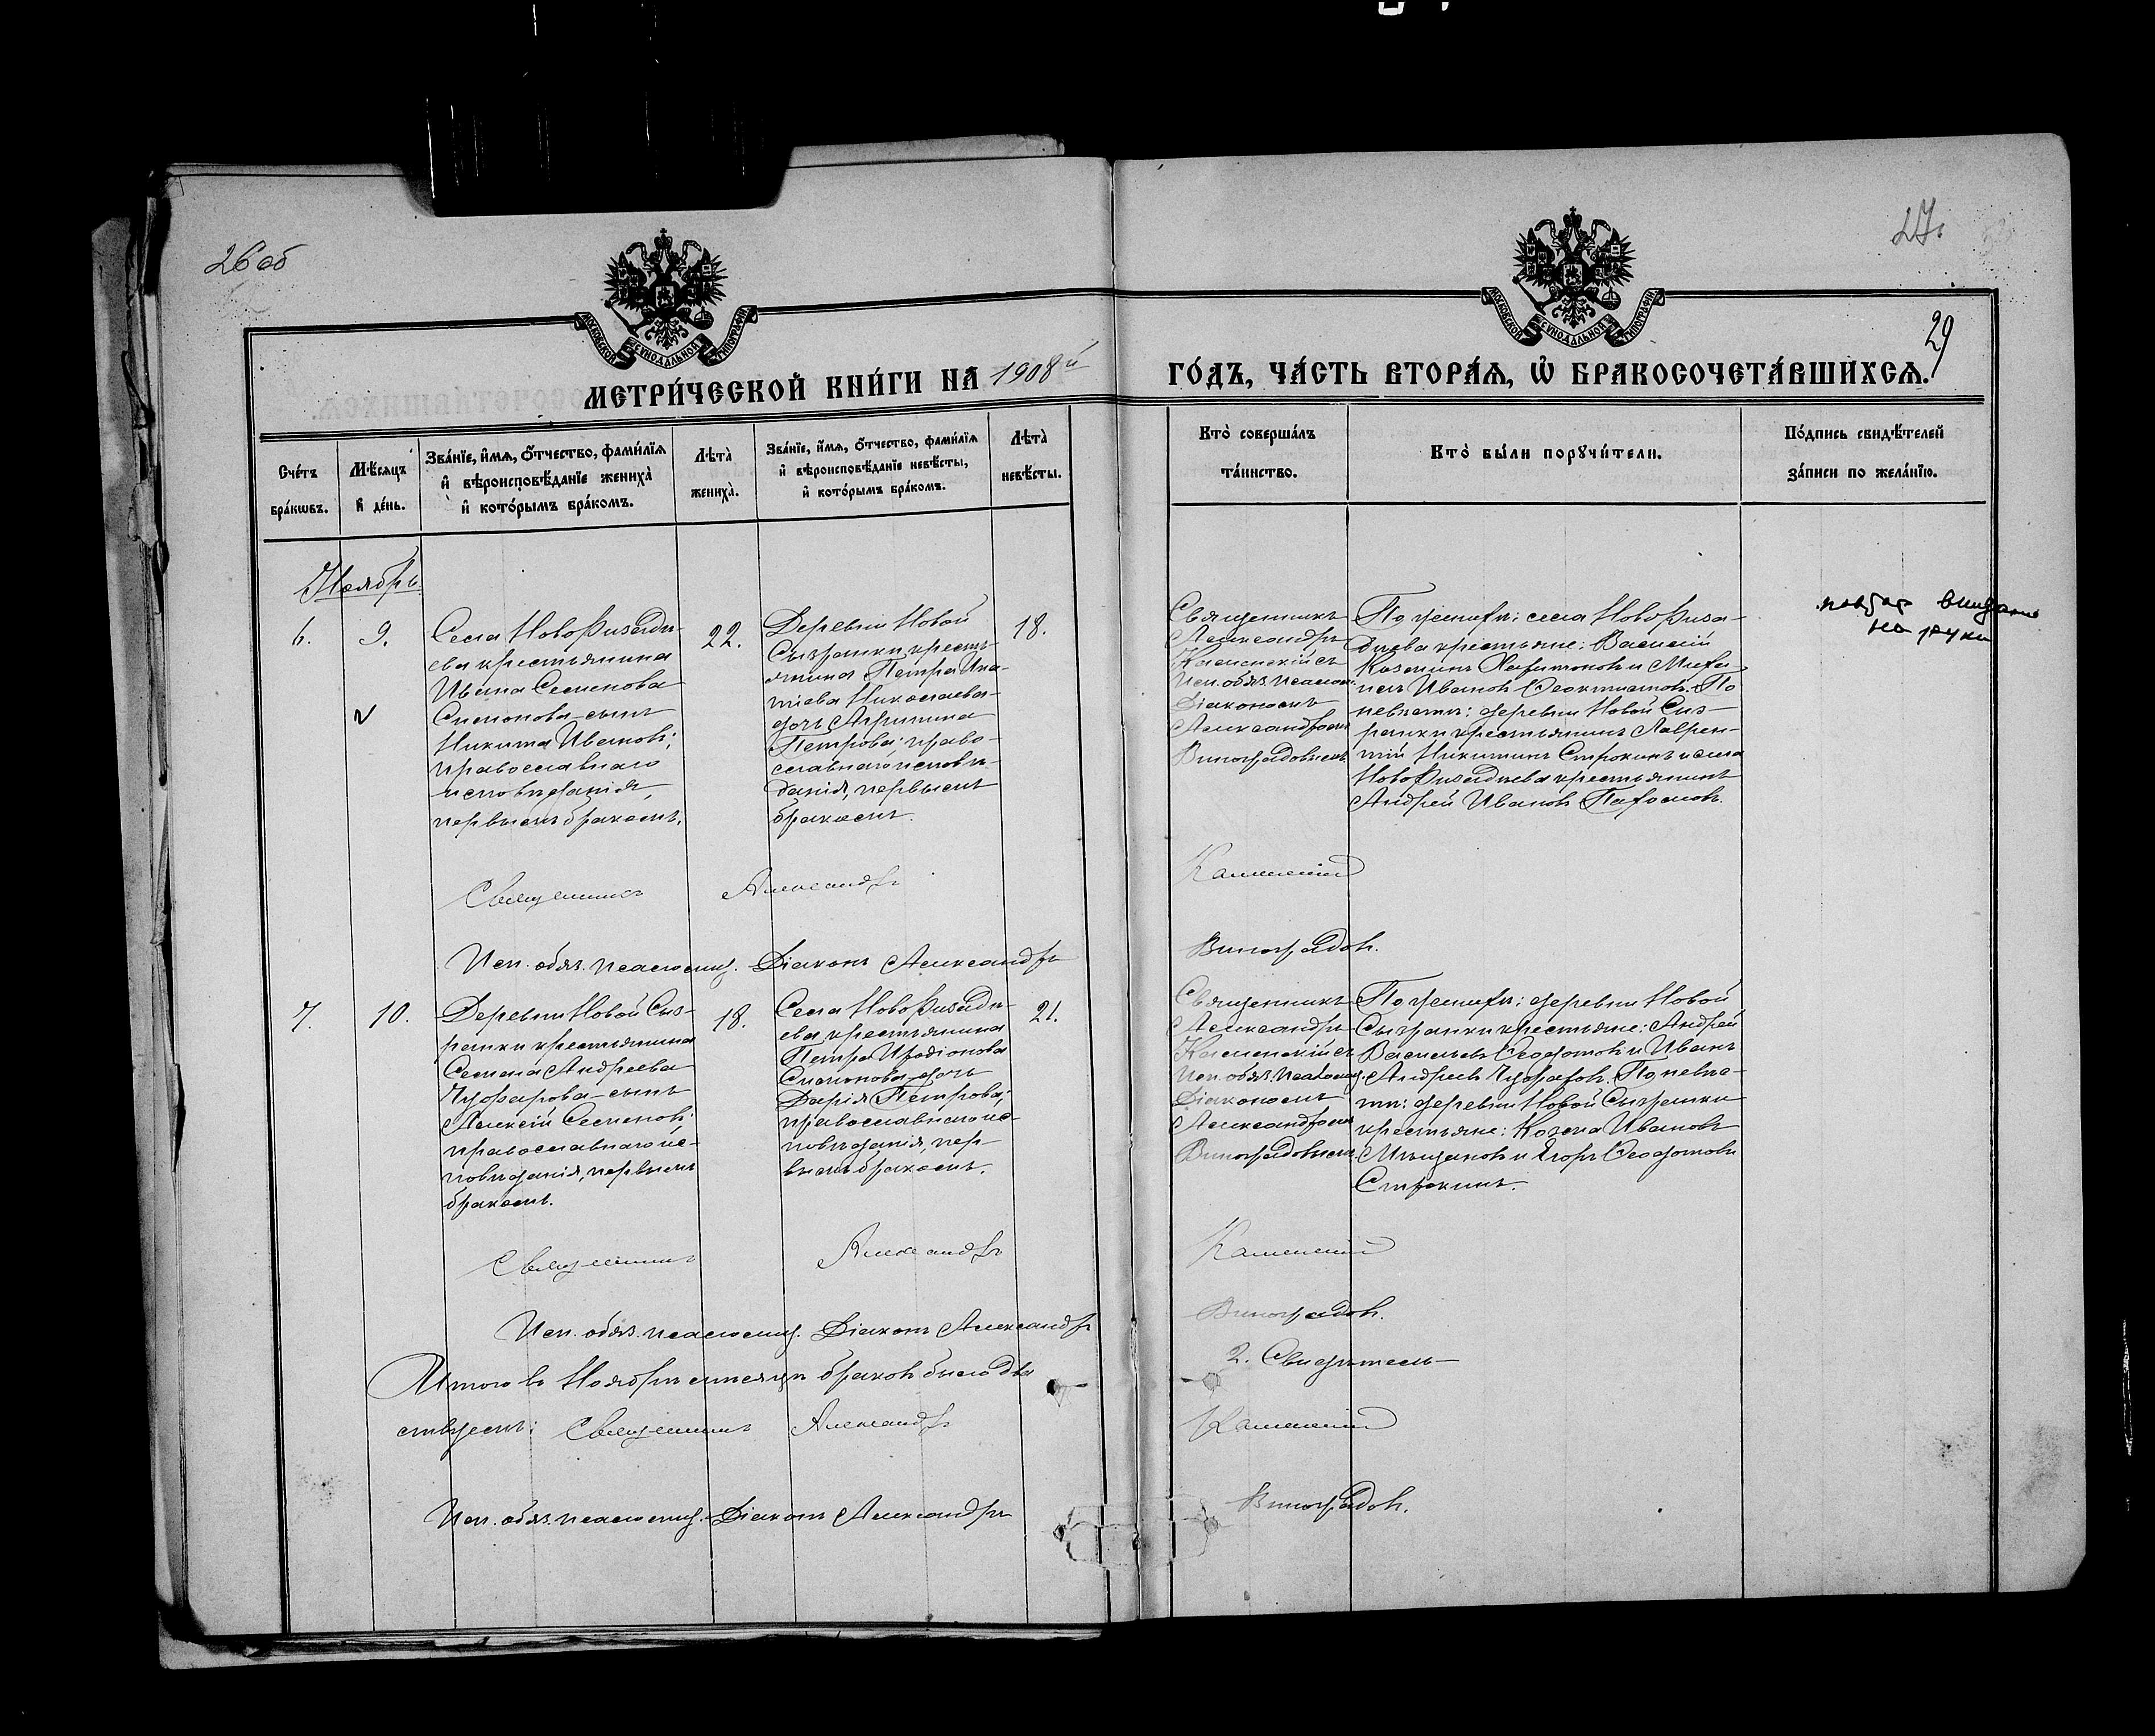 26 об
27.
29
МОСКОВСКОЙ СѴНОДАЛЬНОЙ ТИПОГРАФІИ
МОСКОВСКОЙ СѴНОДАЛЬНОЙ ТИПОГРАФІИ
МЕТРИ́ЧЕСКОЙ КНИ́ГИ НА 1908й ГО́ДЪ, ЧА́СТЬ ВТОРА́Я, Ѡ҆ БРАКОСОЧЕТА́ВШИХСЯ.
Счетъ
бра́кѡвъ.
Мѣ́сяцъ
и҆ де́нь.
Зва́нїе, и҆́мя, ѻ҆́тчество, фами́лїя
и҆ вѣроисповѣ́данїе жениха̀
и҆ кото́рымъ бра́комъ.
Лѣта̀
жениха̀.
Зва́нїе, и҆́мя, ѻ҆́тчество, фами́лїя
и҆ вѣроисповѣ́данїе невѣ́сты,
и҆ кото́рымъ бра́комъ.
Лѣта̀
невѣ́сты.
Кто̀ соверша́лъ
та́инство.
Кто̀ бы́ли порꙋчи́тели.
По́дпись свидѣ́телей
за́писи по жела́нїю.
Ноябрь.
6.
9.
Села Новофизадѣ-
ева крестьянина
Ивана Семенова
Симонова-сынъ
Никита Ивановъ;
православнаго
исповѣданія,
первымъ бракомъ.
22.
Деревни Новой
Сызранки кресть-
янина Петра
Николаева-
дочь
Петрова; право-
славнаго исповѣ-
данія, первымъ
бракомъ.
18.
Священникъ
Александръ
Каменскій съ
Исп. обяз. псалом.
Діакономъ
Александромъ
Виноградовымъ
По женихѣ: села Новофиза-
дѣева крестьяне: Василій
Козминъ Харитоновъ и Миха-
илъ Ивановъ Ѳеоктистовъ. По
невѣстѣ: деревни Новой Сыз-
ранки крестьянинъ Лаврен-
тій Никитинъ Строкинъ и села
Новофизадѣева крестьянинъ
Андрей Ивановъ Пахомовъ.
выдано
на руки
Священникъ Александръ Каменскій
Исп. обяз. псаломщ. Діаконъ Александръ Виноградовъ.
7.
10.
Деревни Новой Сыз-
ранки крестьянина
Семена Андреева
Чуфарова-сынъ
Алексій Семеновъ;
православнаго ис-
повѣданія, первымъ
бракомъ.
18.
Села Новофизадѣ-
ева крестьянина
Петра Иродіонова
Симонова дочь
Дарія Петрова;
православнаго ис-
повѣданія, пер-
вымъ бракомъ.
21.
Священникъ
Александръ
Каменскій съ
Исп. обяз. псаломщ.
Діакономъ
Александромъ
Виноградовымъ.
По женихѣ: деревни Новой
Сызранки крестьяне: Андрей
Васильевъ Ѳедотовъ и Иванъ
Андреевъ Чуфаровъ. По невѣс-
тѣ: деревни Новой Сызранки
крестьяне: Козма Ивановъ
Мѣщановъ и Егоръ Ѳедотовъ
Строкинъ.
Священникъ Александръ Каменскій
Исп. обяз. псаломщ. Діаконъ Александръ Виноградовъ.
Итого въ Ноябрѣ мѣсяцѣ браковъ было два 2. Свидѣтель-
ствуемъ: Священникъ Александръ Каменскій
Исп. обяз. псаломщ. Діаконъ Александръ Виноградовъ.